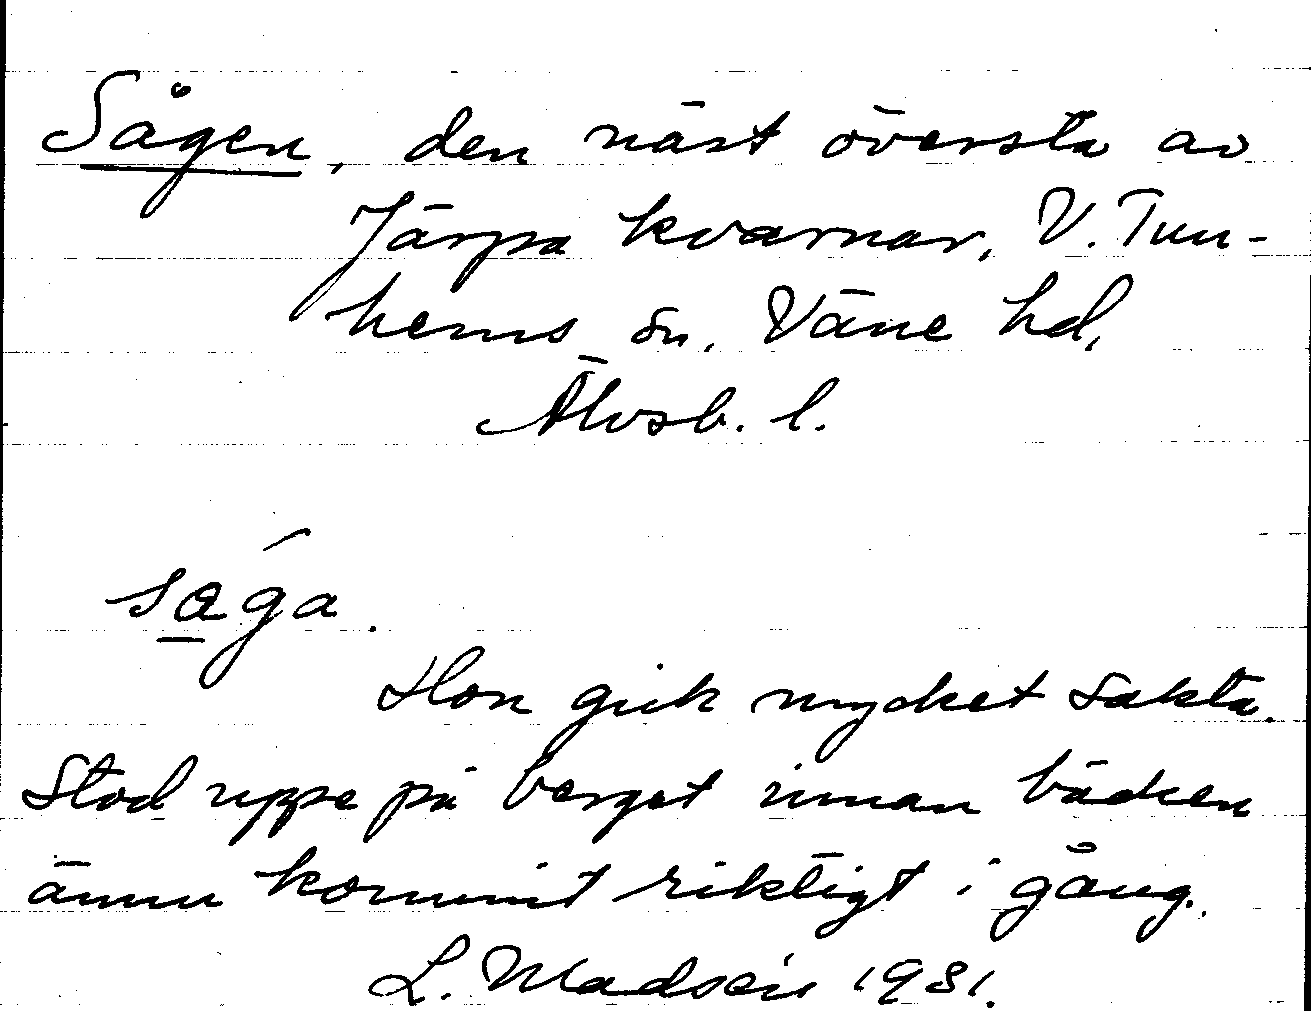 Sågen, den näst översta av
Järpa kvarnar, V. Tun-
hems sn, Väne hd,
Älvsb. l.
sa̲ǵa.
Hon gick mycket sakta.
Stod uppe på berget innan bäcken
ännu kommit riktigt i gång.
L. Madsén 1931.